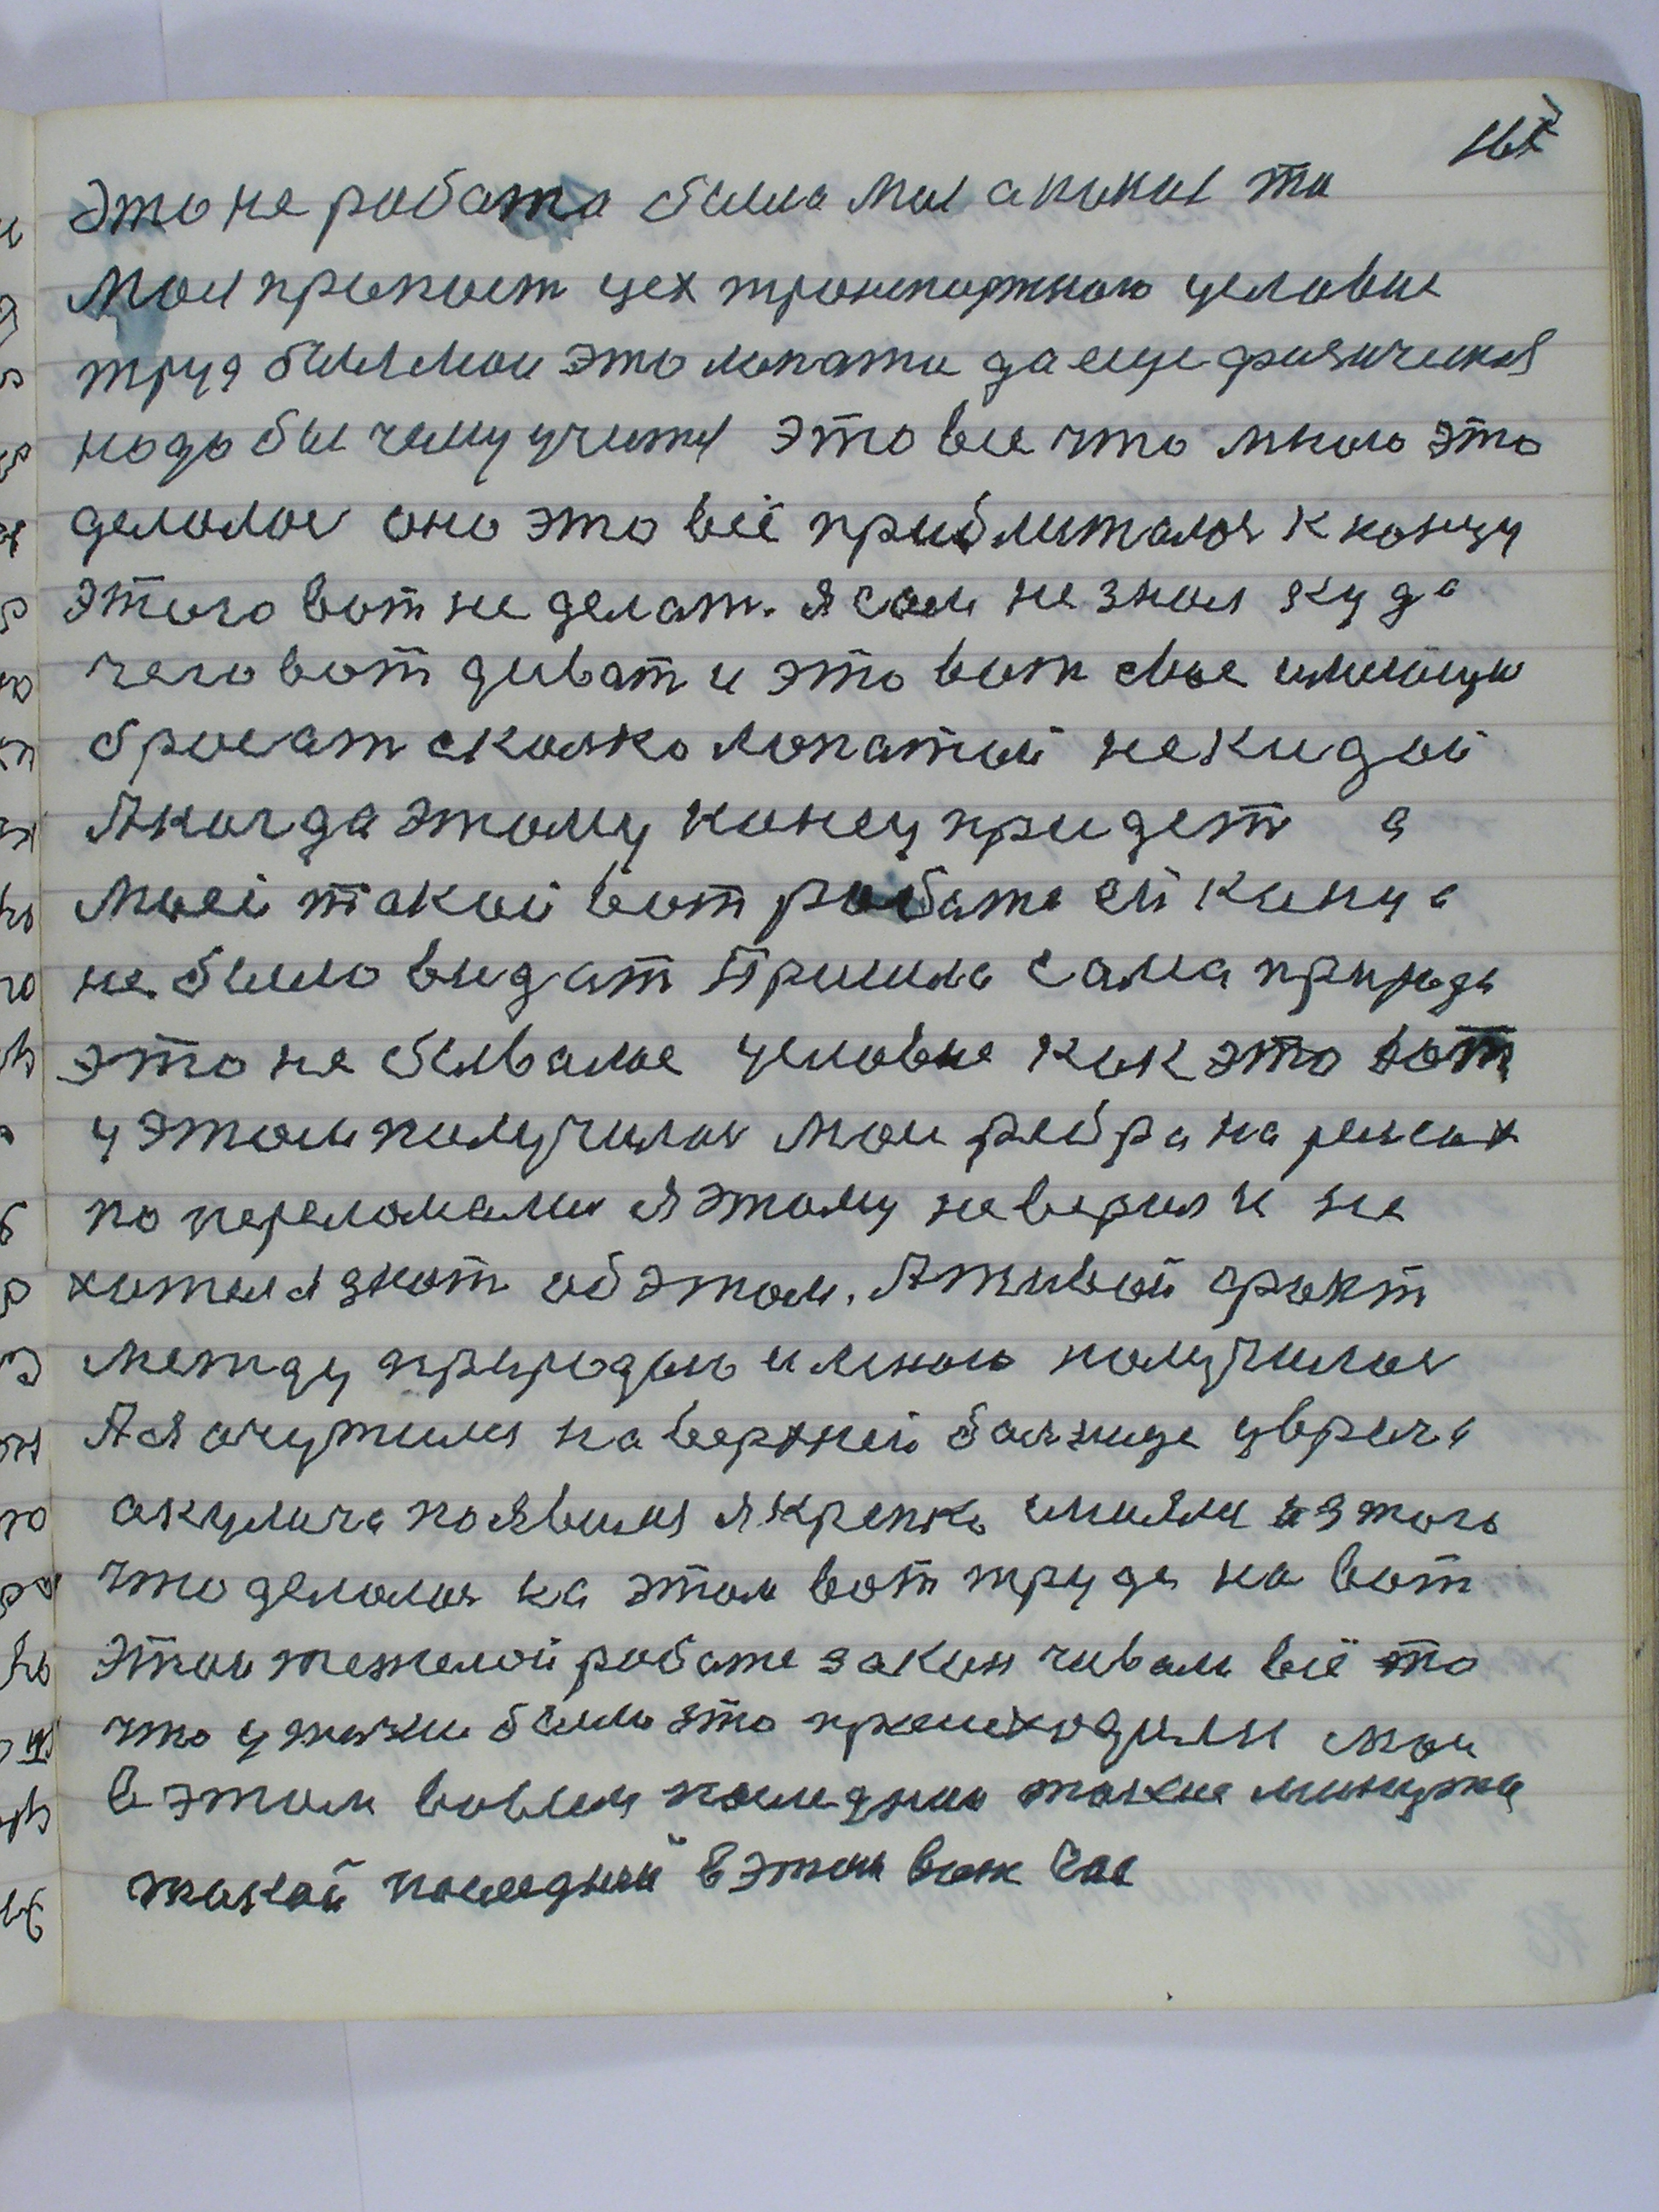 Это не работа была моя а какая то
Моя припаст цех транспортного условие
труд был мои это лопата да еще физическая
надо бы чему учится это все что мною это
делалос оно это всё приближалося к концу
этого вот не делат. я сам не знал куда
чего вот диват и это вот свае
бросат сколко лопатой не кидой
А когда этому конец придет а
моей такой вот работе ей конца
не было видат Пришла сама природа
это не бывалое условие как это вот
у этом получилос мои рёбра на
по переломали я этому не верил и не
хотел я знат об этом. А живой факт
между природою и мною получилос
А я очутился на верхней болнице у врача
акулича появился я крепко из того
что делалося на этом вот труде на вот
этои тежелой работе заканчивал всё то
что у жизни было это происходили мои
в этом вовсем последнии такие минуты
такой последний в этом вот час